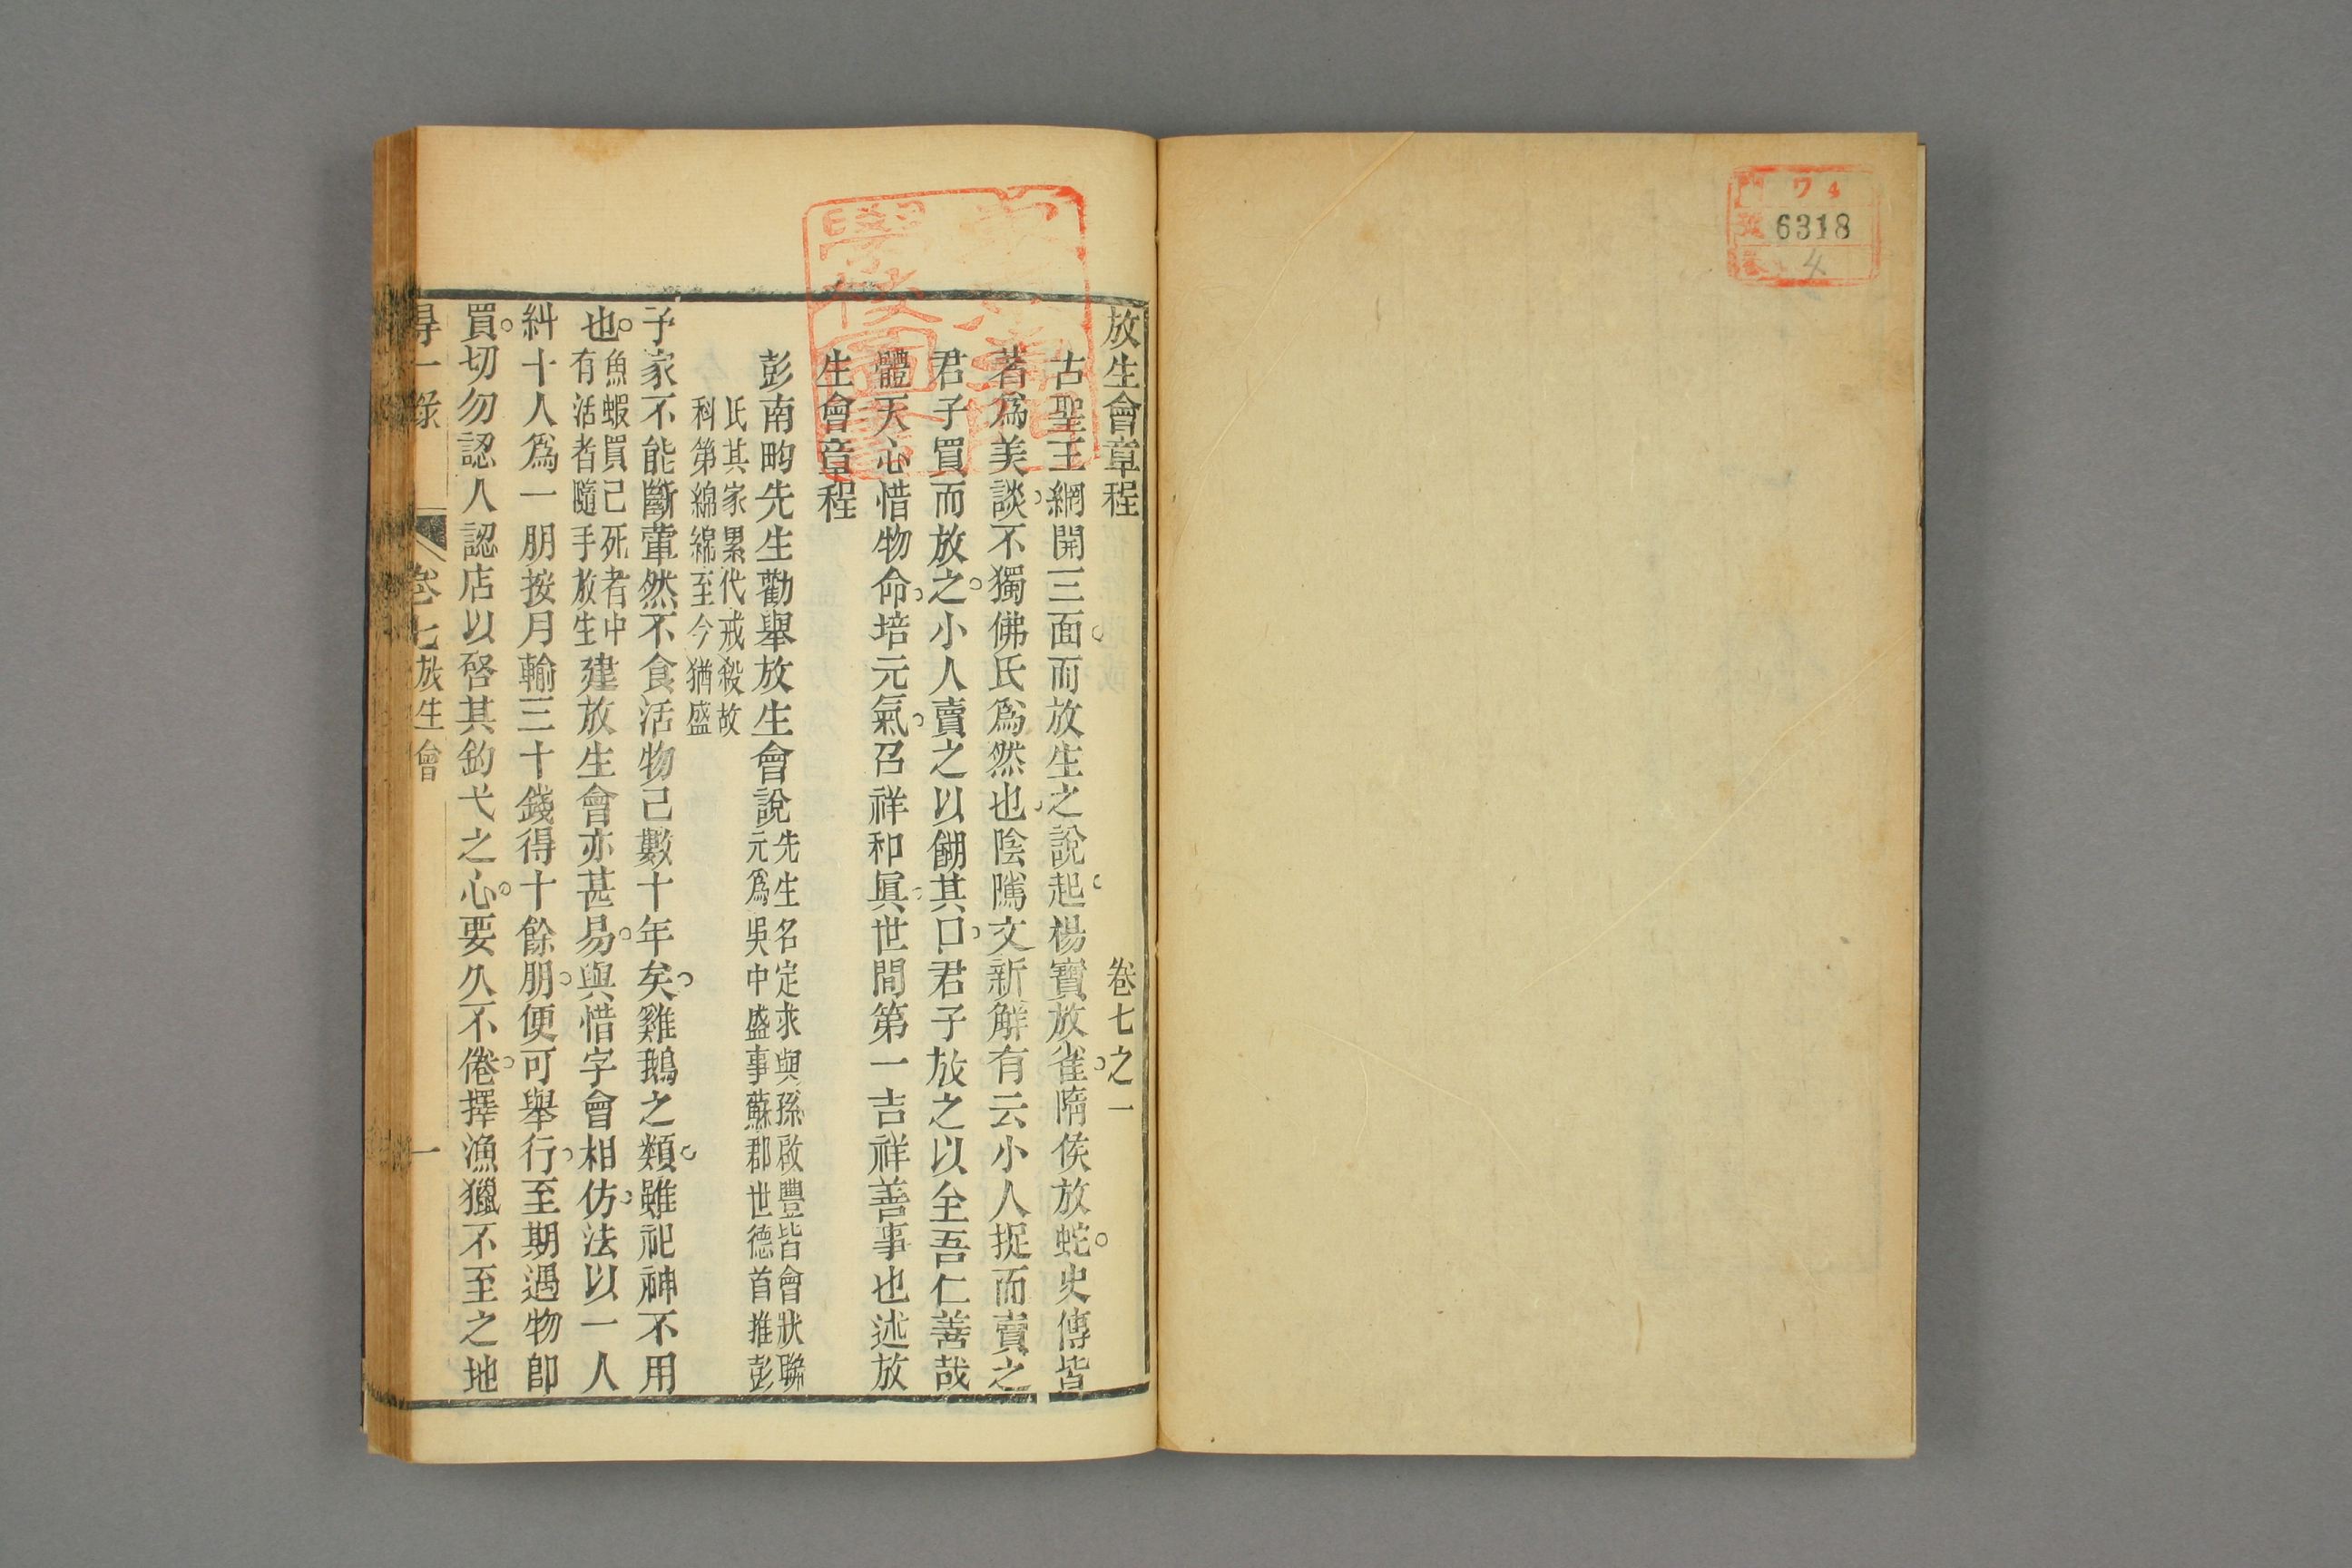 放生會章程 卷七之一
古聖王網開三面而放生之說起楊寶放雀隋侯放蛇史傳皆
著爲美談不獨佛氏爲然也陰隲文新解有云小人捉而賣之
君子買而放之小人賣之以餬其口君子放之以全吾仁善哉
體天心惜物命培元氣召祥和眞世間第一吉祥善事也述放
生會章程
彭南畇先生勸舉放生會說先生名定求與孫啟豐皆會狀聯
元爲吳中盛事蘇郡世德首推彭
氏其家累代戒殺故
科第綿綿至今猶盛
予家不能斷葷然不食活物已數十年矣雞鵝之類雖祀神不用
也魚蝦買已死者中
有活者隨手放生建放生會亦甚易與惜字會相仿法以一人
糾十人爲一朋按月輸三十錢得十餘朋便可舉行至期遇物卽
買切勿認人認店以啓其釣弋之心要久不倦擇漁獵不至之地
得一錄 卷七放生會 一
ワ4
6318
4